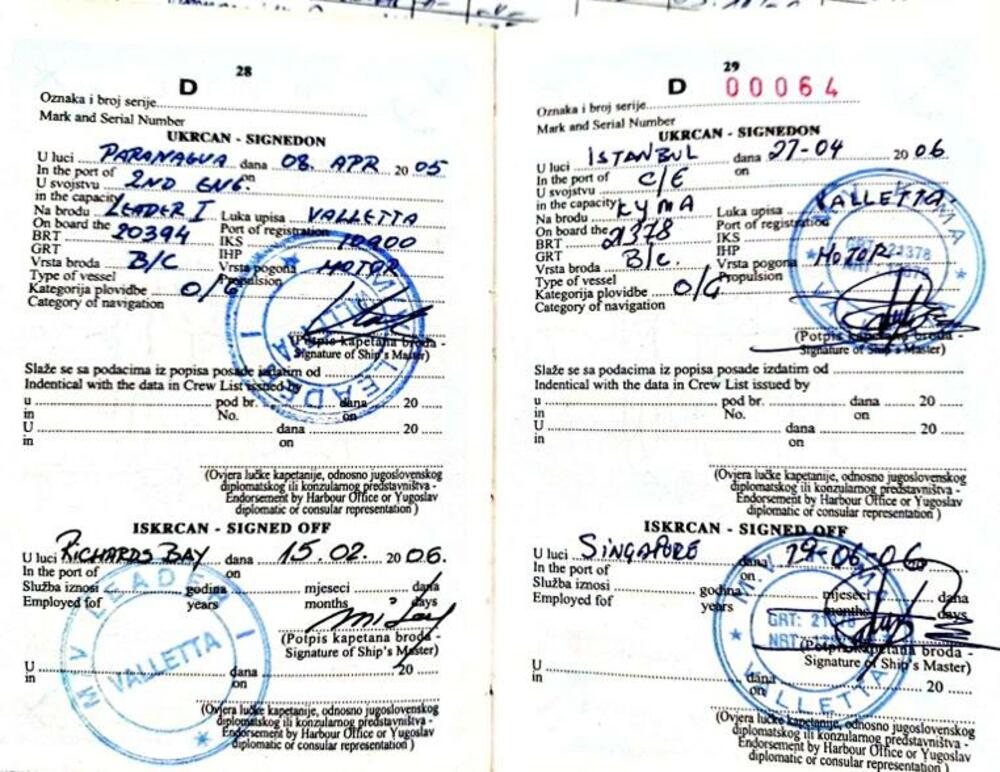 28
D
Oznaka i broj serije
Mark and Serial Number
UKRCAN - SIGNEDON
U luci PARANAGUA dana 08. APR 2005
In the port of on
U svojstvu 2ND ENG.
in the capacity
Na brodu LEADER I Luka upisa VALLETTA
On board the Port of registration
BRT 20394 IKS 10900
GRT IHP
Vrsta broda B/C Vrsta pogona MOTOR
Type of vessel Propulsion
Kategorija plovidbe O/G
Category of navigation
(Potpis kapetana broda -
Signature of Ship's Master)
Slaže se sa podacima iz popisa posade izdatim od
Indentical with the data in Crew List issued by
u pod br. dana 20
in No. on
U dana 20
in on
(Ovjera lučke kapetanije, odnosno jugoslovenskog
diplomatskog ili konzularnog predstavništva -
Endorsement by Harbour Office or Yugoslav
diplomatic or consular representation)
ISKRCAN - SIGNED OFF
U luci RICHARDS BAY dana 15.02. 2006.
In the port of on
Služba iznosi godina mjeseci dana
Employed fof years months days
(Potpis kapetana broda -
Signature of Ship's Master)
U dana 20
in on
(Ovjera lučke kapetanije, odnosno jugoslovenskog
diplomatskog ili konzularnog predstavništva -
Endorsement by Harbour Office or Yugoslav
diplomatic or consular representation)
M V LEADER I
VALLETTA
29
D 00064
Oznaka i broj serije
Mark and Serial Number
UKRCAN - SIGNEDON
U luci ISTANBUL dana 27-04 2006
In the port of C/E on
U svojstvu
in the capacity
Na brodu KYMA Luka upisa VALLETTA
On board the Port of registration
BRT 21378 IKS
GRT IHP
Vrsta broda B/C. Vrsta pogona MOTOR
Type of vessel Propulsion
Kategorija plovidbe O/G
Category of navigation
(Potpis kapetana broda -
Signature of Ship's Master)
Slaže se sa podacima iz popisa posade izdatim od
Indentical with the data in Crew List issued by
u pod br. dana 20
in No. on
U dana 20
in on
(Ovjera lučke kapetanije, odnosno jugoslovenskog
diplomatskog ili konzularnog predstavništva -
Endorsement by Harbour Office or Yugoslav
diplomatic or consular representation)
ISKRCAN - SIGNED OFF
U luci SINGAPORE dana 29-06-06
In the port of on
Služba iznosi godina mjeseci dana
Employed fof years months days
(Potpis kapetana broda -
Signature of Ship's Master)
U dana 20
in on
(Ovjera lučke kapetanije, odnosno jugoslovenskog
diplomatskog ili konzularnog predstavništva -
Endorsement by Harbour Office or Yugoslav
diplomatic or consular representation)
GRT: 21378
VALLETTA